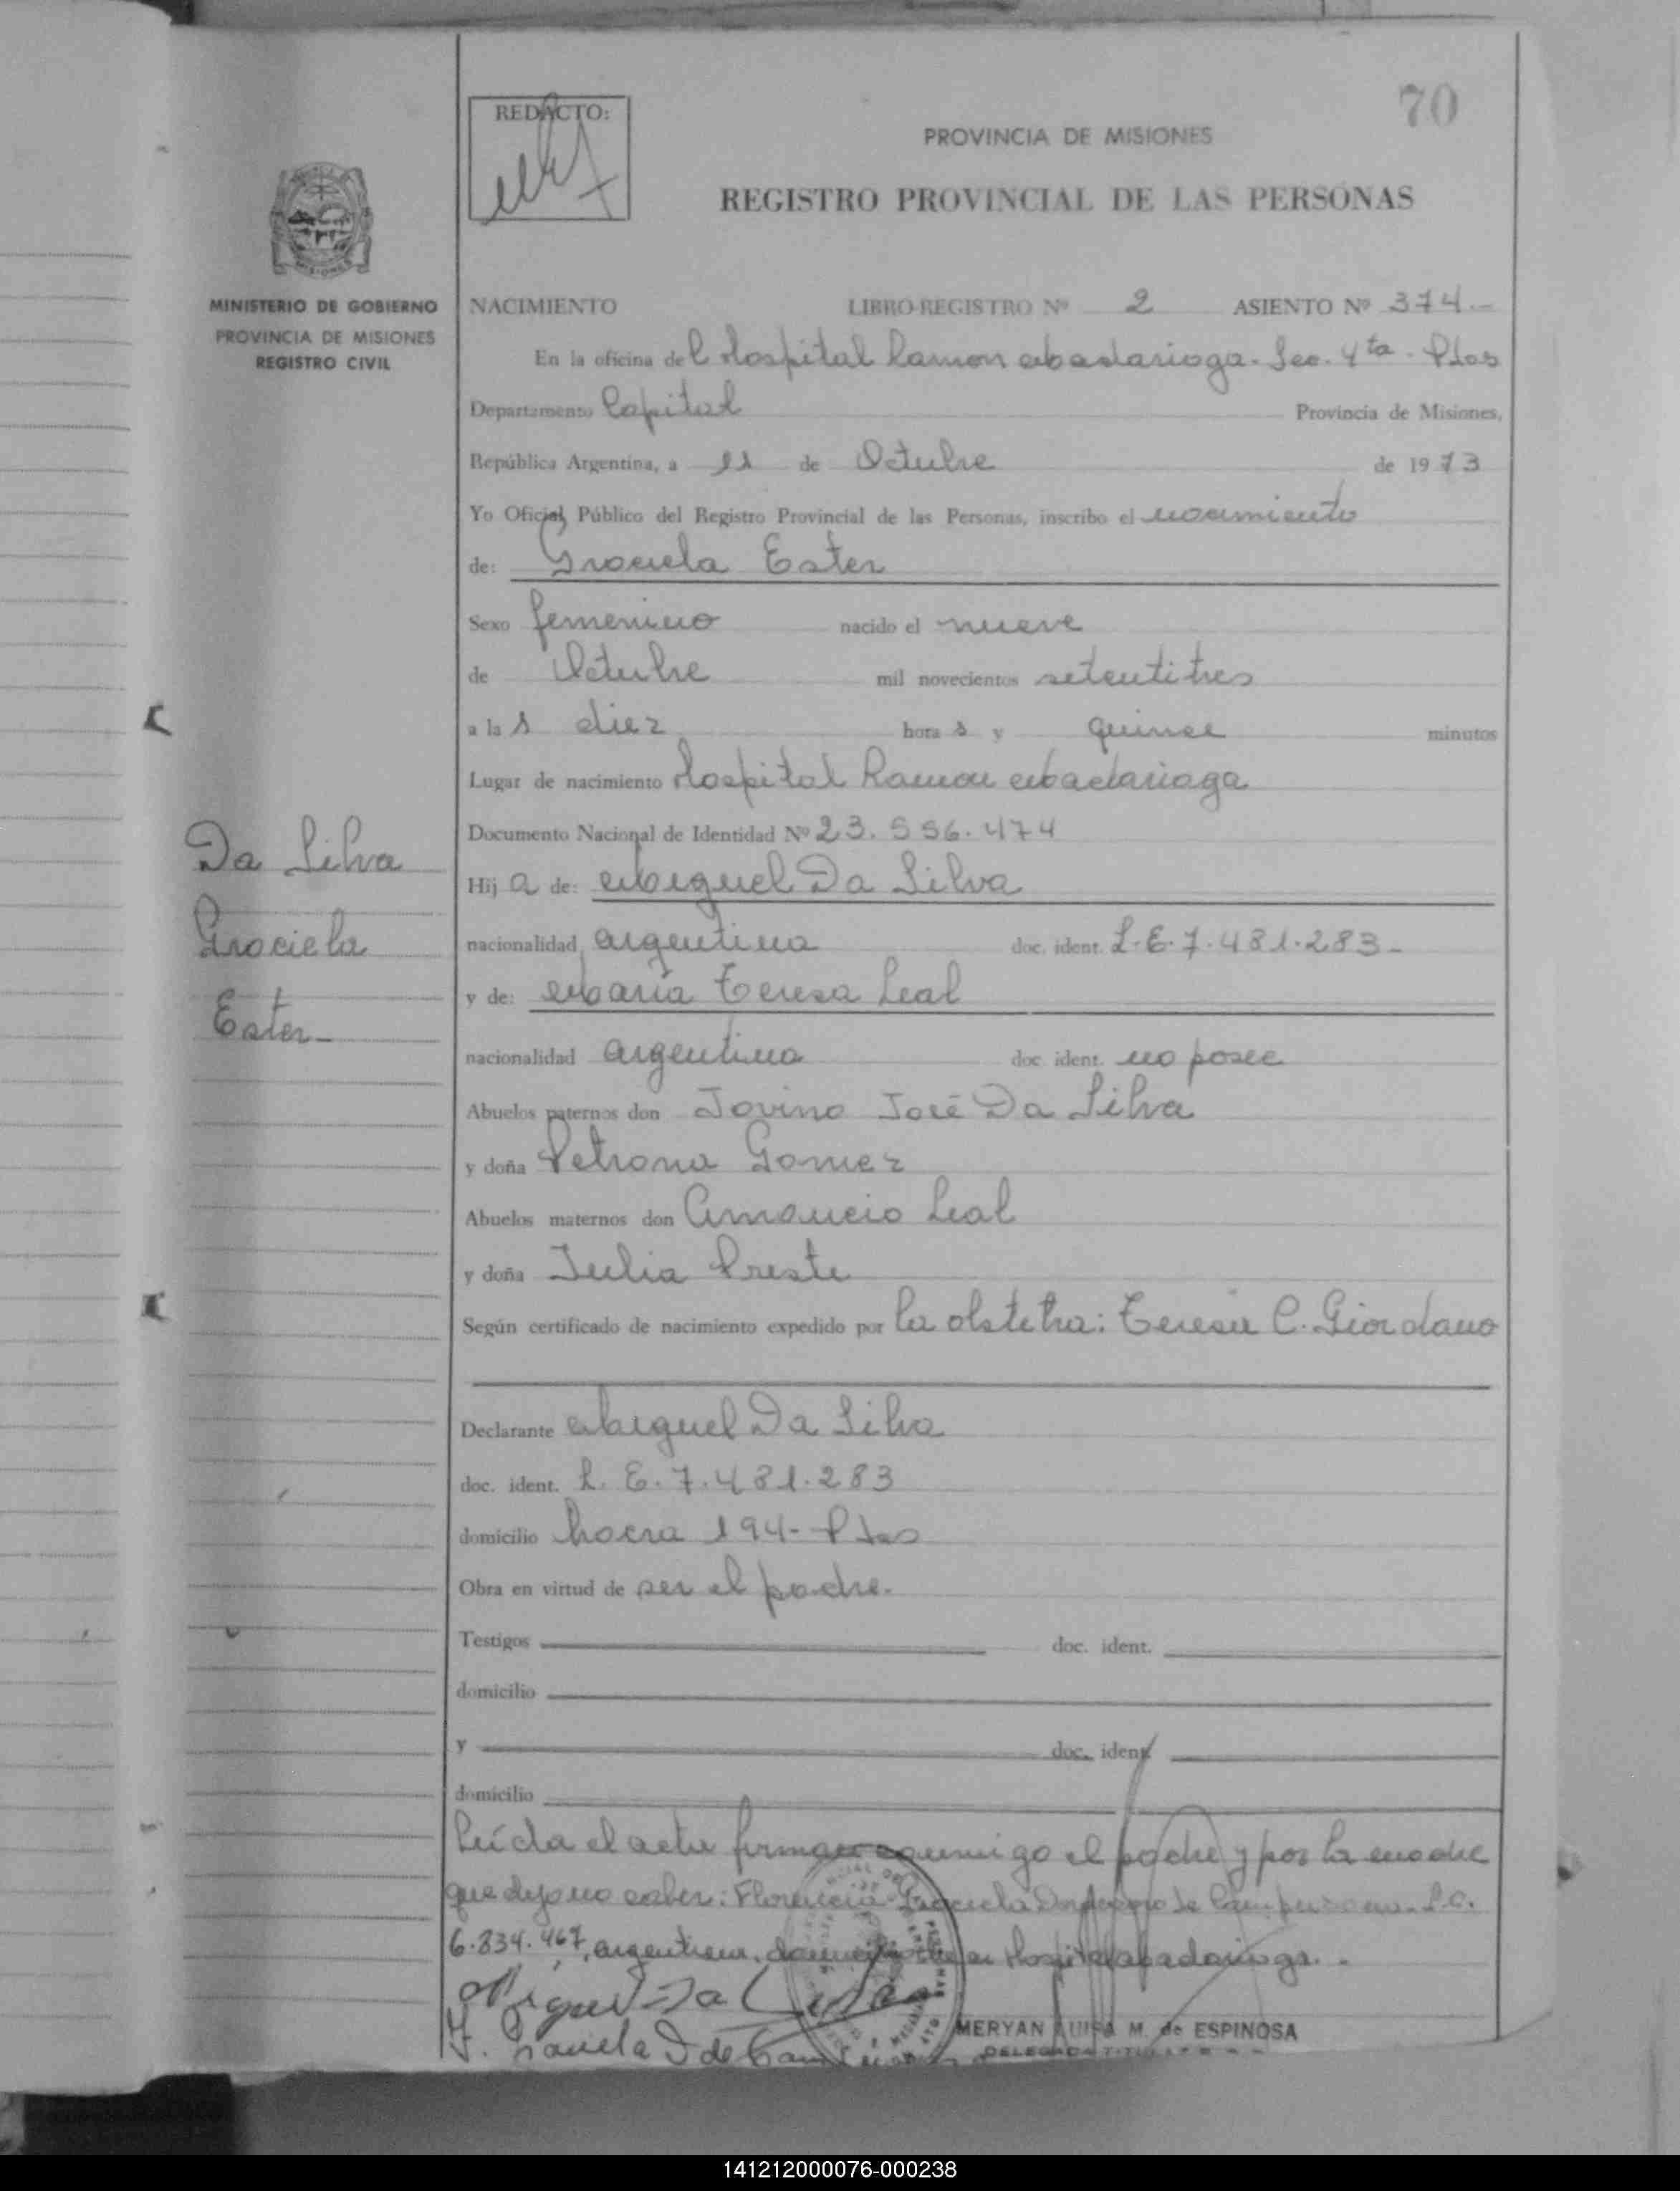 70
REDACTO:
PROVINCIA DE MISIONES
REGISTRO PROVINCIAL DE LAS PERSONAS
MISIONES
MINISTERIO DE GOBIERNO
PROVINCIA DE MISIONES
REGISTRO CIVIL
NACIMIENTO LIBRO-REGISTRO Nº 2 ASIENTO Nº 374.-
En la oficina del Hospital Ramon Madariaga. Sec. 4ta. Pdas
Departamento Capital Provincia de Misiones,
República Argentina, a 11 de Octubre de 1973
Yo Oficial Público del Registro Provincial de las Personas, inscribo el nacimiento
de: Graciela Ester
Sexo femenino nacido el nueve
de Octubre mil novecientos setentitres
a las diez horas y quince minutos
Lugar de nacimiento Hospital Ramon Madariaga
Documento Nacional de Identidad Nº 23.556.474
Da Silva
Graciela
Ester-
Hija de: Miguel Da Silva
nacionalidad argentina doc. ident. L.E. 7.481.283-
y de: María Teresa Leal
nacionalidad argentina doc. ident. no posee
Abuelos paternos don Jovino José Da Silva
y doña Petrona Gomez
Abuelos maternos don Amancio Leal
y doña Julia Preste
Según certificado de nacimiento expedido por la obstetra: Teresa C. Giordano
Declarante Miguel Da Silva
doc. ident. L. E. 7.481.283
domicilio 194- Pdas
Obra en virtud de ser el padre.
Testigos doc. ident.
domicilio
y doc. ident.
domicilio
Leída el acta firman conmigo el padre y por la madre
que dijo no saber: Florencia Graciela de L.C.
6.834.467, argentina, domiciliada en Hospital Madariaga.-
Miguel Da Silva
F. Graciela D de
MERYAN LUISA M. de ESPINOSA
DELEGADA TITULAR
141212000076-000238